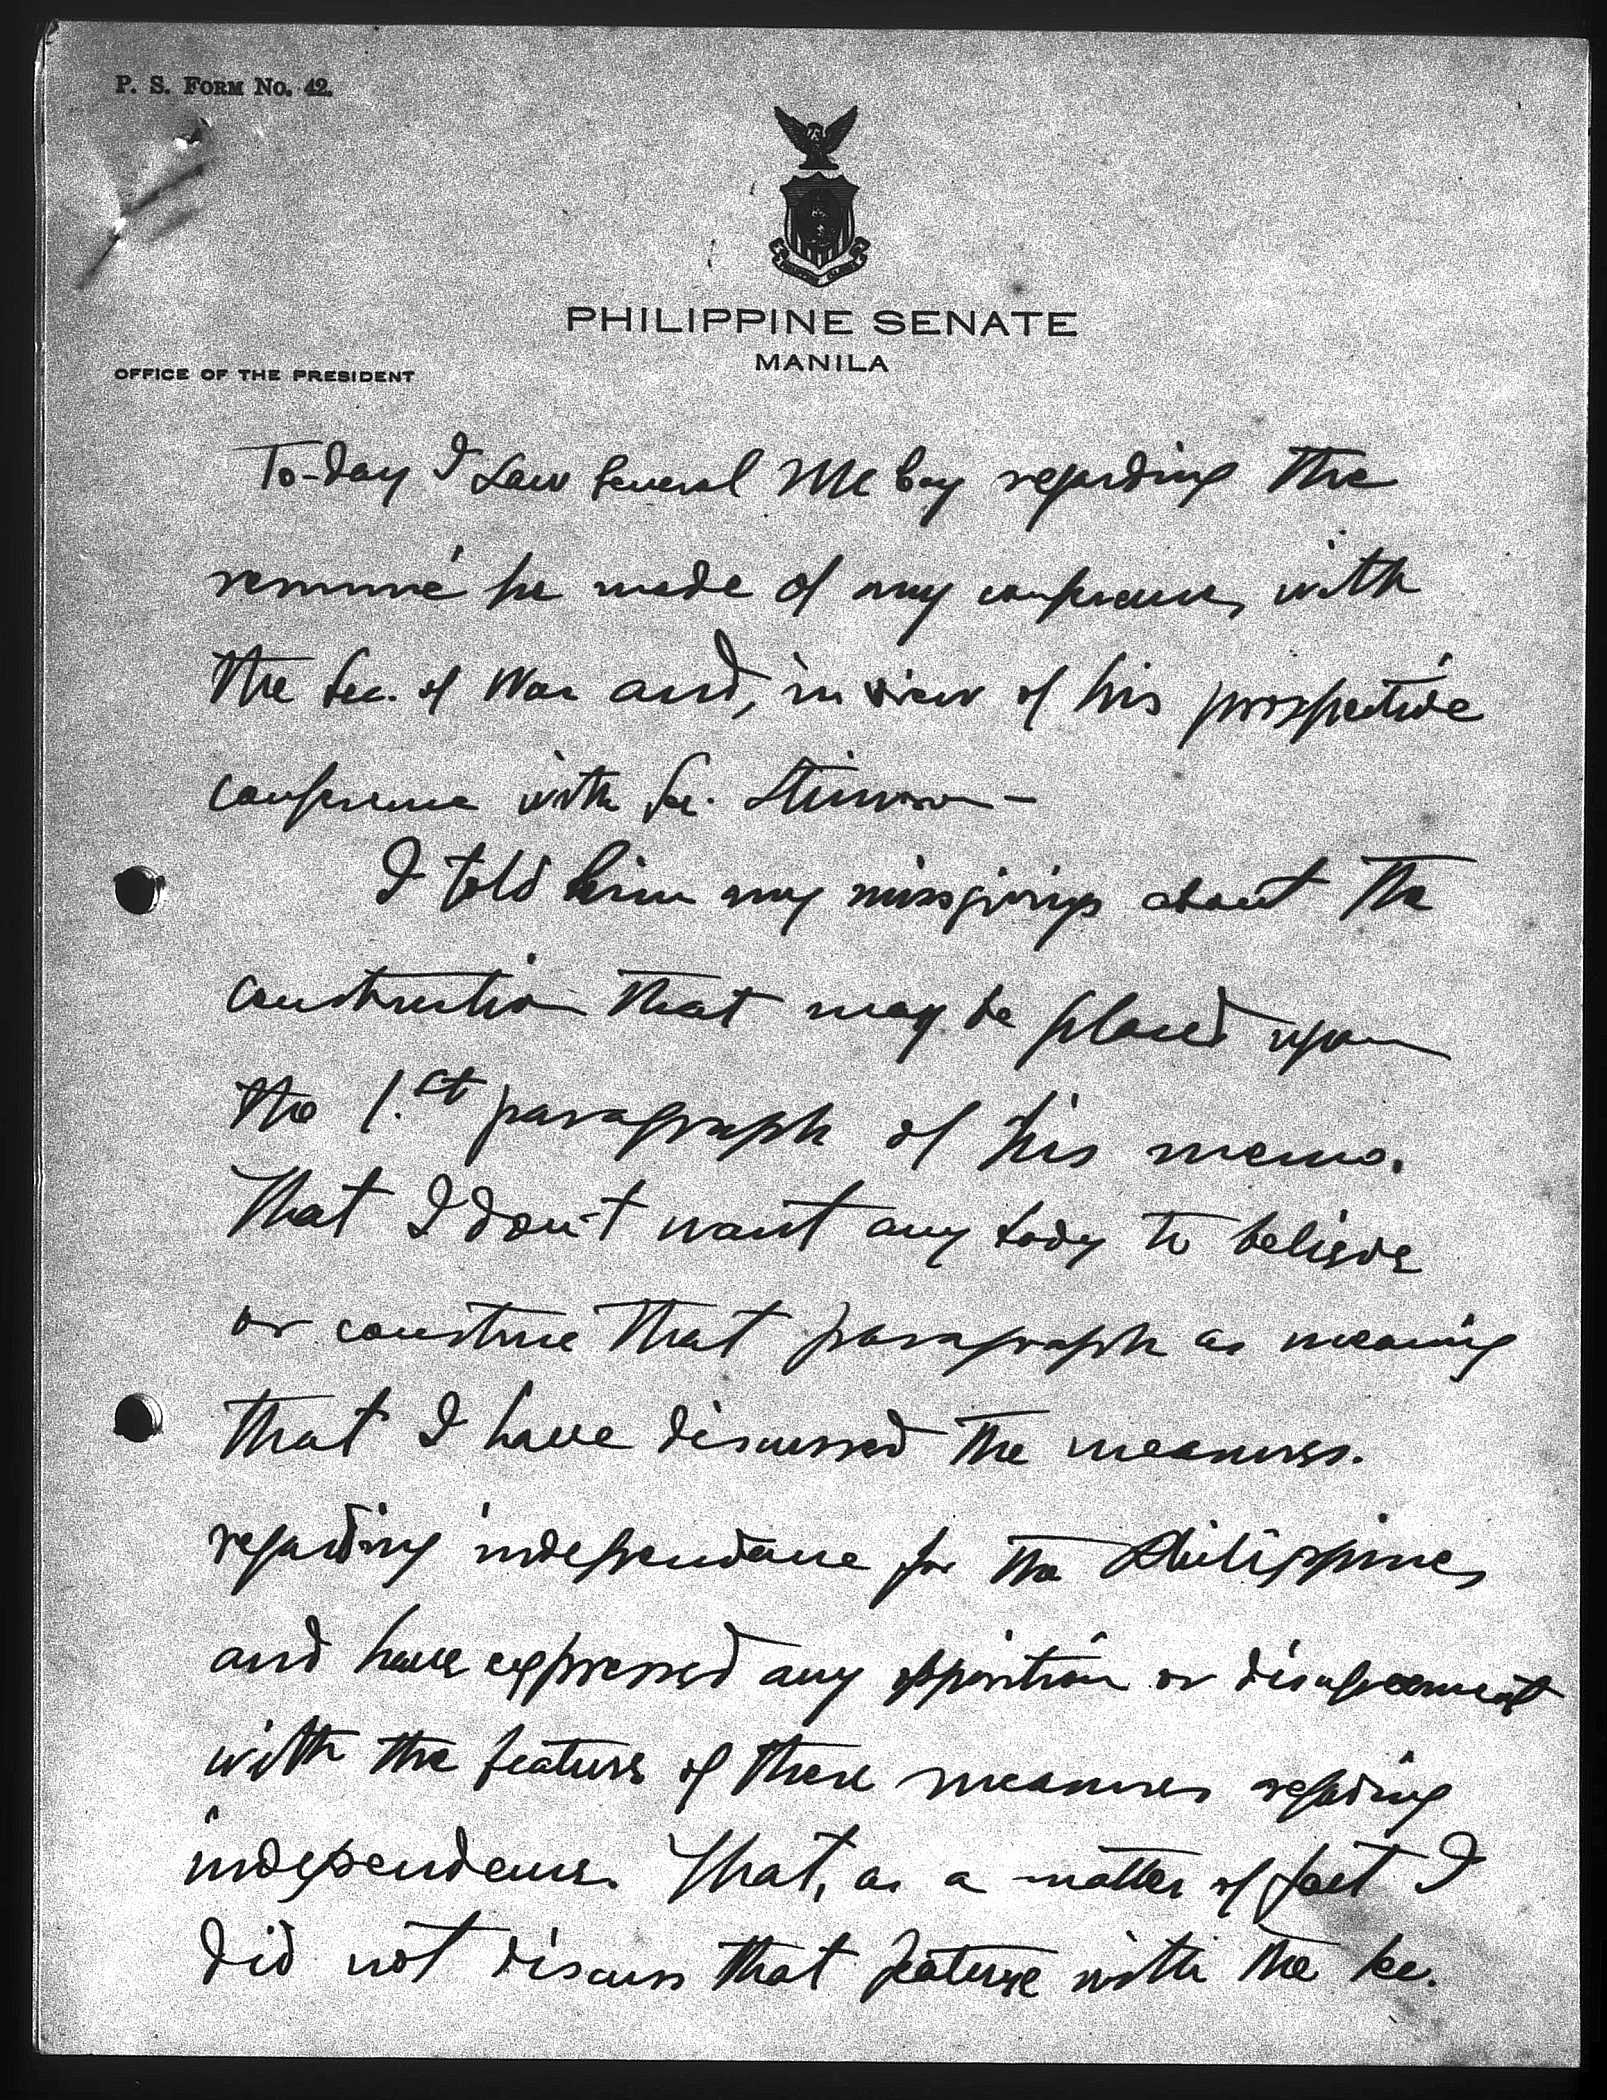 P. S. FORM NO. 42.
PHILIPPINE SENATE
MANILA
OFFICE OF THE PRESIDENT
To-day I saw General McCoy regarding the
resumé he made of my conferences with
the Sec. of War and, in view of his prospective
conference with Sec. Stimson—
I told him my missgivings about the
construction that may be placed upon
the 1.st paragraph of his memo.
That I don't want any body to believe
or construe that paragraph as meaning
that I have discussed the measures.
regarding independence for the Philippines
and have expressed any opposition or disagreement
with the feature of these measures regarding
independence. That, as a matter of fact I
did not discuss that feature with the Sec.